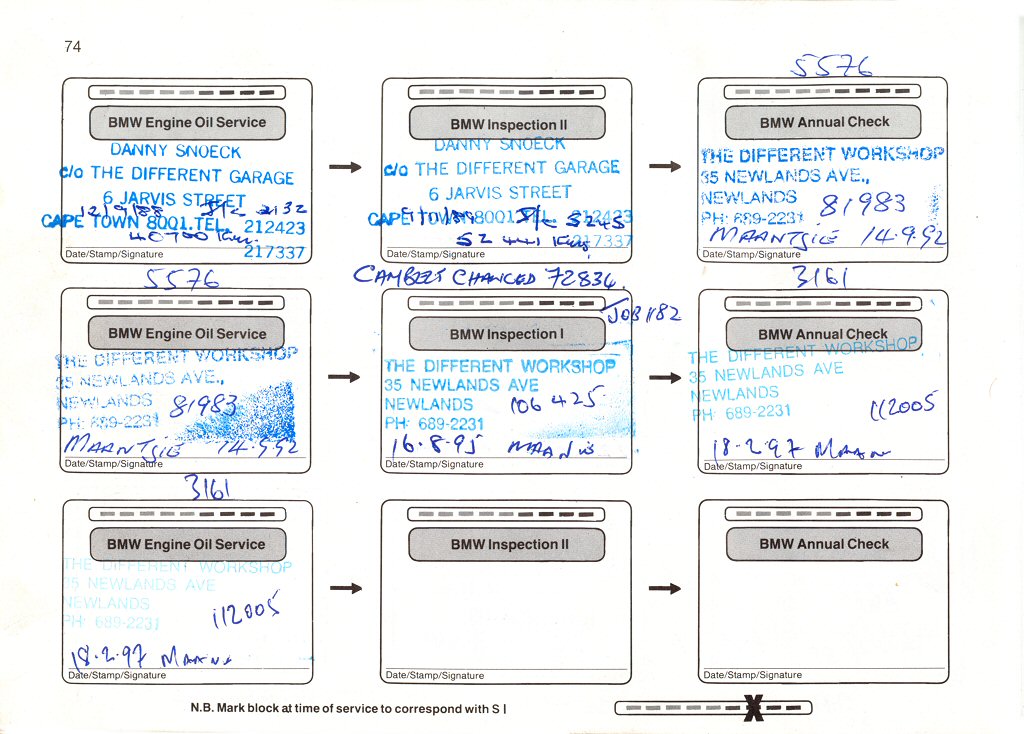 74
5576
BMW Engine Oil Service
DANNY SNOECK
c/o THE DIFFERENT GARAGE
6 JARVIS STREET
12/9/88 2132
CAPE TOWN 8001.TEL. 212423
40700 Km.
217337
Date/Stamp/Signature
BMW Inspection II
DANNY SNOECK
c/o THE DIFFERENT GARAGE
6 JARVIS STREET
CAPE TOWN 8001.TEL 212423
5245
52 441 Km
217337
Date/Stamp/Signature
BMW Annual Check
THE DIFFERENT WORKSHOP
35 NEWLANDS AVE.,
NEWLANDS
81983
PH: 689-2231
MAANTJIE 14.9.92
Date/Stamp/Signature
5576
CAMBELT CHANGED 72834.
3161
BMW Engine Oil Service
THE DIFFERENT WORKSHOP
35 NEWLANDS AVE.,
NEWLANDS
81983
PH: 689-2231
MAANTJIE 14.9.92
Date/Stamp/Signature
JOB 1182
BMW Inspection I
THE DIFFERENT WORKSHOP
35 NEWLANDS AVE
NEWLANDS
106 425
PH: 689-2231
16.8.95
Date/Stamp/Signature
BMW Annual Check
THE DIFFERENT WORKSHOP
35 NEWLANDS AVE
NEWLANDS
PH: 689-2231
112005
18.2.97
Date/Stamp/Signature
3161
BMW Engine Oil Service
THE DIFFERENT WORKSHOP
35 NEWLANDS AVE
NEWLANDS
PH: 689-2231
112005
18.2.97
Date/Stamp/Signature
BMW Inspection II
Date/Stamp/Signature
BMW Annual Check
Date/Stamp/Signature
N.B. Mark block at time of service to correspond with S I
X